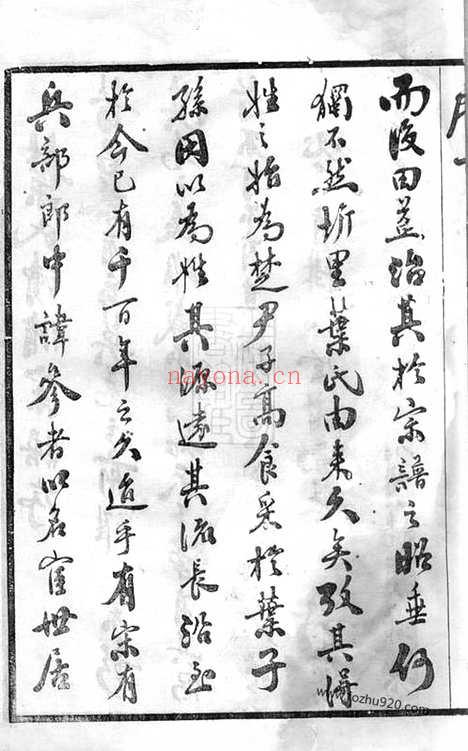 而後田疇治其於宗譜之昭垂何
獨不然圻里葉氏由來久矣攷其得
姓之始為楚尹子高食采於葉子
孫因以為姓其源遠其流長沿至
於今已有千百年之久迨乎有宋有
兵部郎中諱參者以名宦世居
nayona.cn
zuzhu920.com